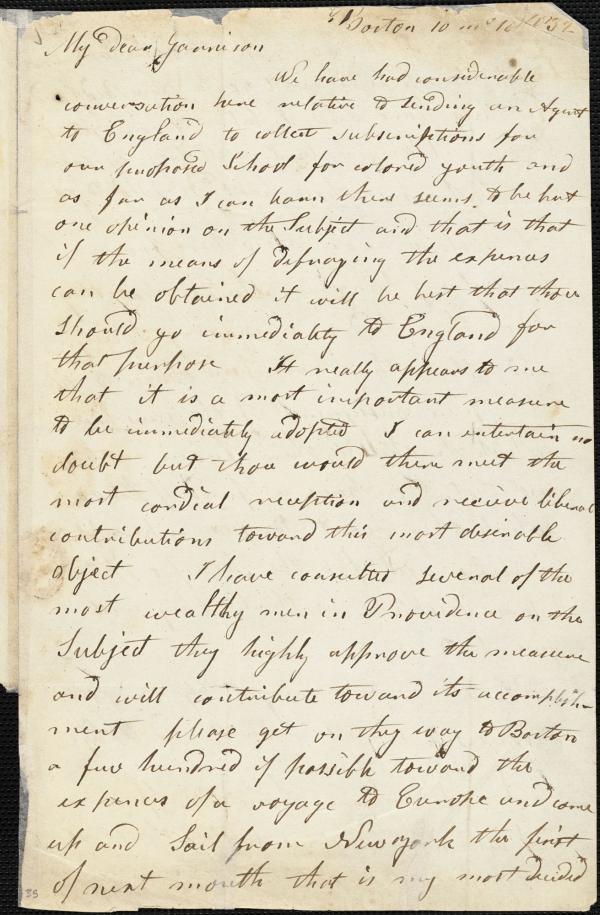 Boston 10 mo 10th 1832
My dear Garrison
We have had considerable
conversation here relative to sending an Agent
to England to collect subscriptions for
our proposed School for colored youth and
as far as I can learn there seems to be but
one opinion on the Subject and that is that
if the means of defraying the expences
can be obtained it will be best that thou
Should go immediately to England for
that purpose It really appears to me
that it is a most important measure
to be immediately adopted I can entertain no
doubt but thou would there meet the
most cordial reception and recieve liberal
contributions toward this most desirable
object I have consulted several of the
most wealthy men in Providence on the
Subject they highly approve the measure
and will contribute toward its accomplish-
ment please get on thy way to Boston
a few hundred if possible toward the
expences of a voyage to Europe and come
up and Sail from New york the first
of next month that is my most decided
35